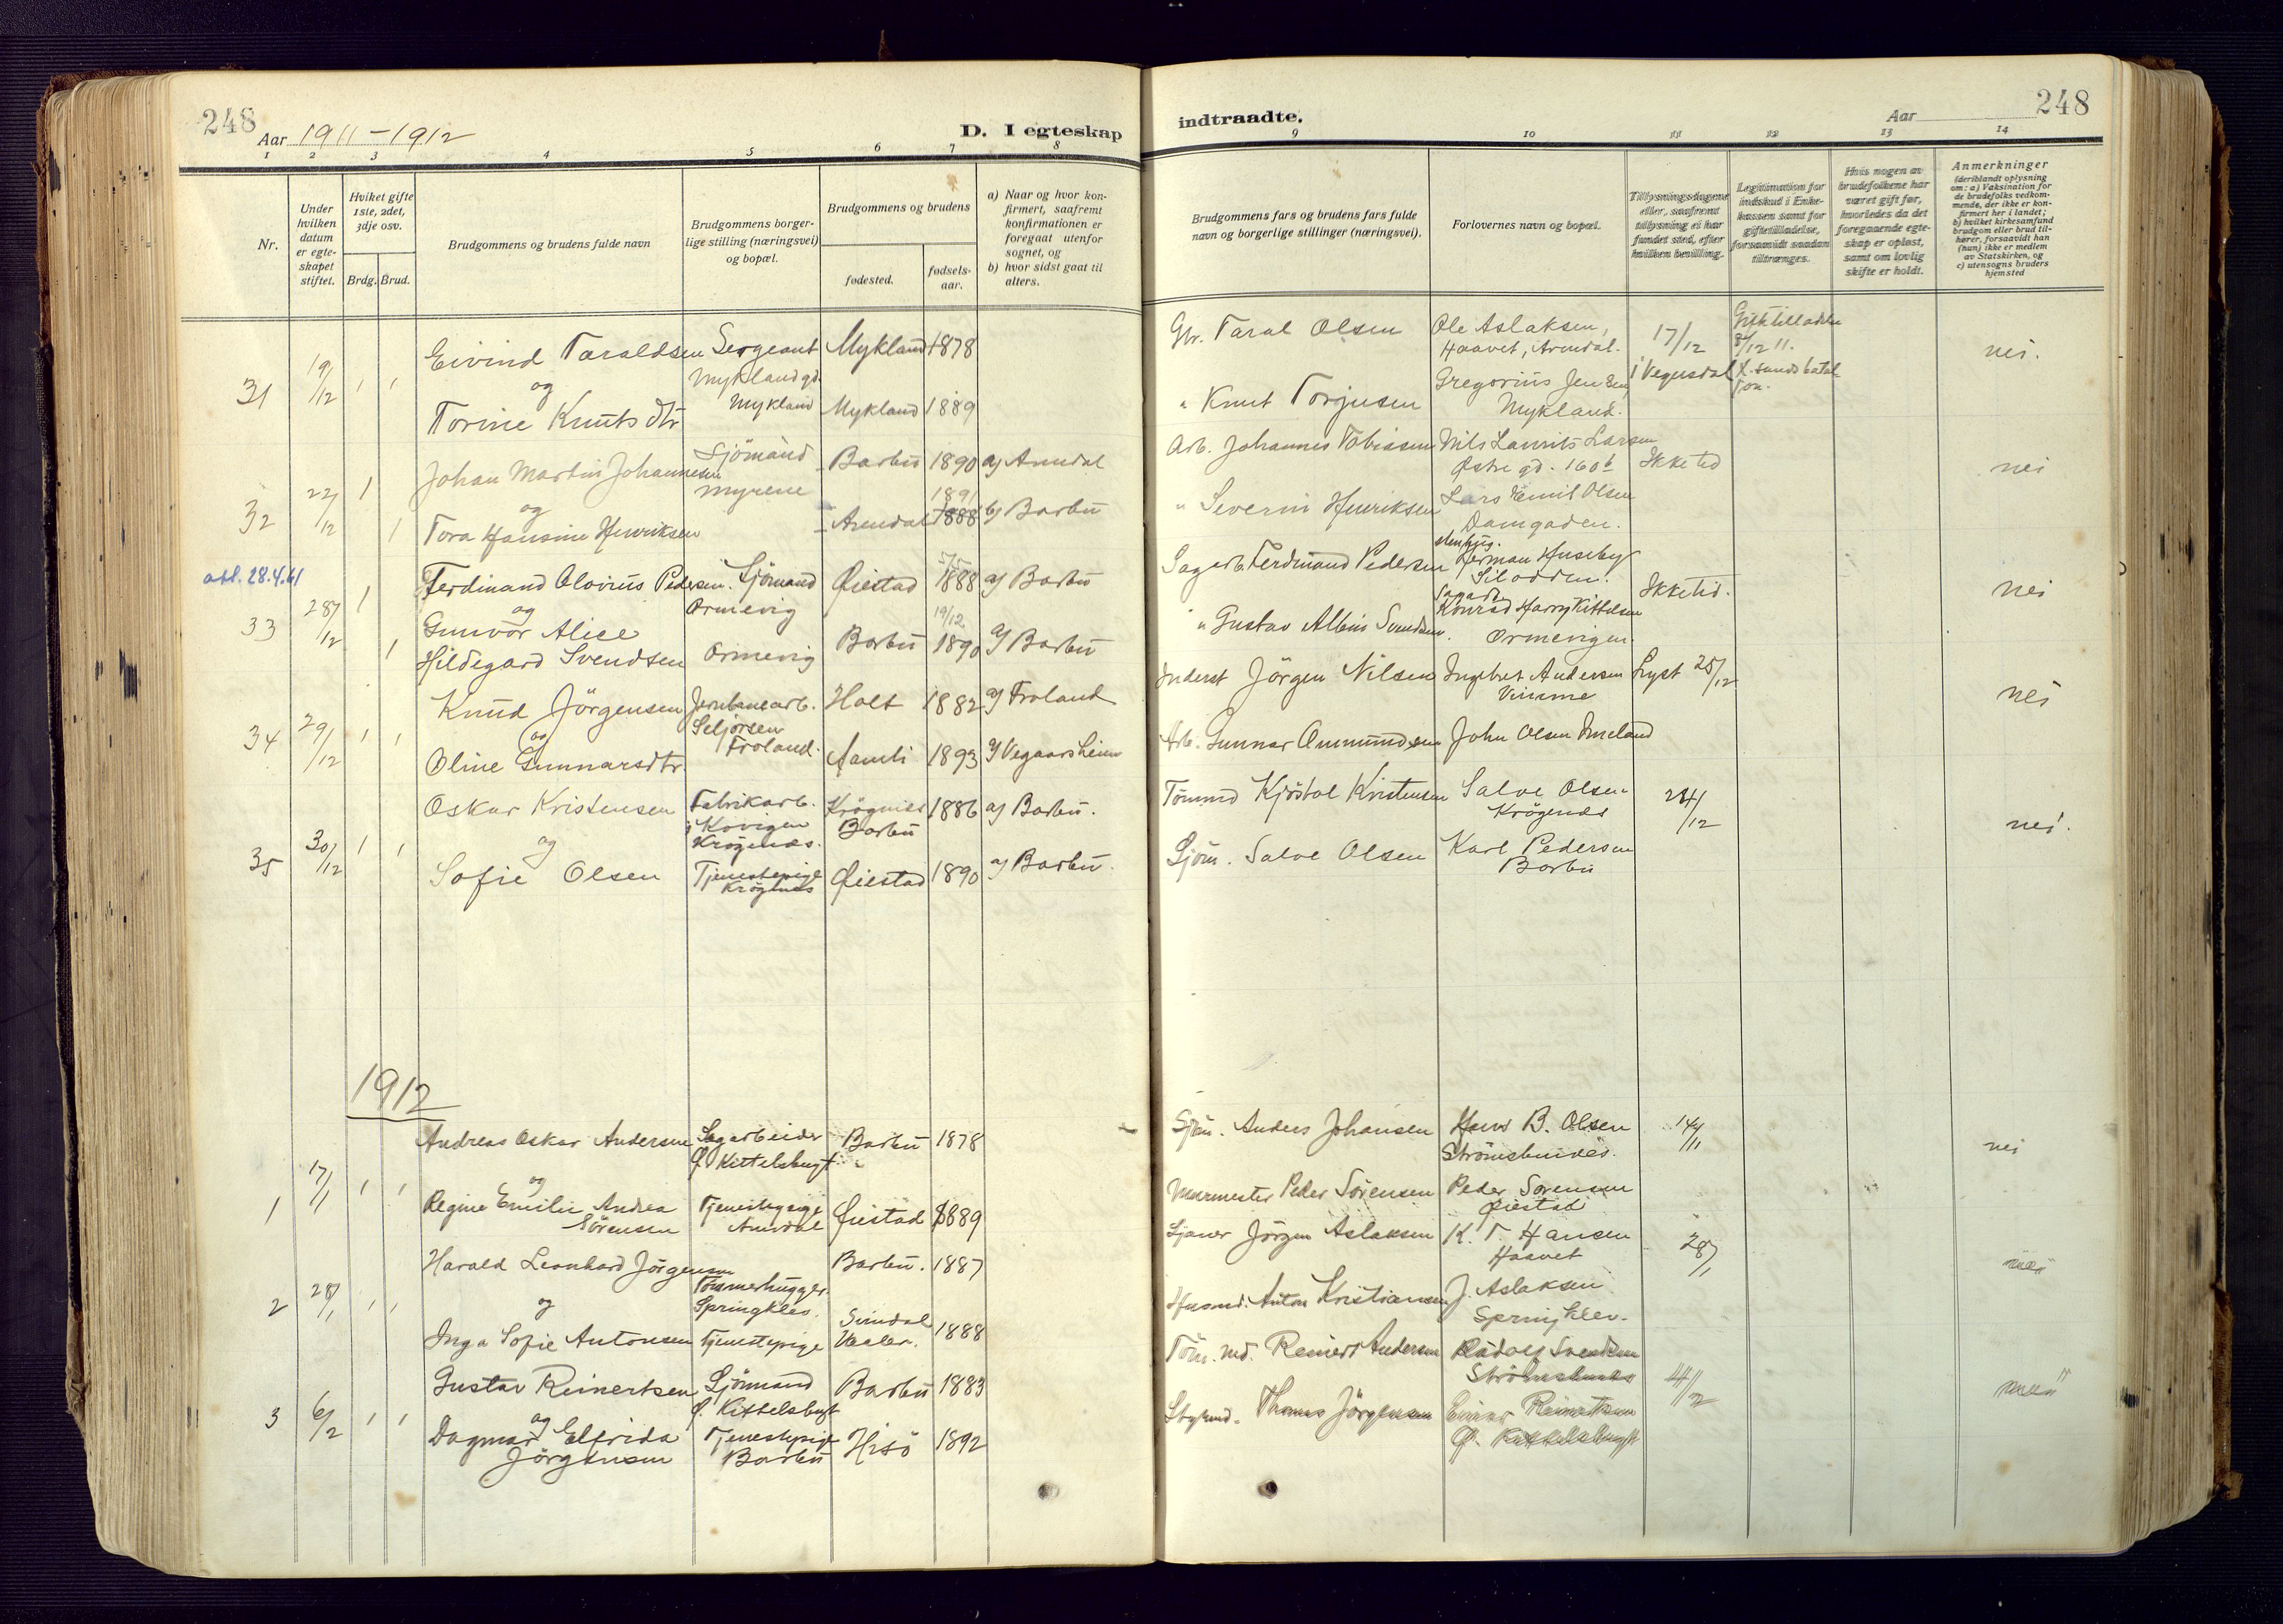 248
Aar 1911-1912
D. I egteskap
indtraadte.
Aar
248
1 2 3 4 5 6 7 8
9 10 11 12 13 14
Nr.
Under hvilken datum er egte-skapet stiftet.
Hvilket gifte 1ste, 2det, 3dje osv.
Brdg. Brud.
Brudgommens og brudens fulde navn
Brudgommens borger-lige stilling (næringsvei) og bopæl.
Brudgommens og brudens
fødested.
fødsels-aar.
a) Naar og hvor kon-firmert, saafremt konfirmationen er foregaat utenfor sognet, og
b) hvor sidst gaat til alters.
Brudgommens fars og brudens fars fulde navn og borgerlige stillinger (næringsvei).
Forlovernes navn og bopæl.
Tillysningsdagene eller, saafremt tillysning ei har fundet sted, efter hvilken bevilling.
Legitimation for indskud i Enke-kassen samt for giftetilladelse, forsaavidt saadan tiltrænges.
Hvis nogen av brudefolkene har været gift før, hvorledes da det foregaaende egte-skap er opløst, samt om lovlig skifte er holdt.
Anmerkninger
(deriblandt oplysning om: a) Vaksination for de brudefolks vedkom-mende, der ikke er kon-firmert her i landet; b) hvilket kirkesamfund brudgom eller brud til-hører, forsaavidt han (hun) ikke er medlem av Statskirken, og c) utensogns bruders hjemsted
31 19/12 1 1
Eivind Taraldsen
og
Torine Knutsdtr
Sergeant
Myklandgd.
Mykland
Mykland 1878
Mykland 1889
Gbr. Taral Olsen
" Knut Torjusen
Ole Aslaksen,
Haavet, Arendal.
Gregorius Jensen,
Mykland.
17/12
i Vegusdal
Giftetilladelse
8/12 11.
X.sunds batal-
ion.
nei.
32 22/12 1 1
Johan Martin Johannesen
og
Tora Hansine Henriksen
Sjömand
Myrene
Barbu 1890 a) Arendal
Arendal 1891 1888 b) Barbu
Arb. Johannes Tobiassen
" Severin Henriksen
Nils Laurits Larsen
Østre gd. 160b
Lars Emil Olsen
Damgaden.
Ikke tid
nei
abl. 28.4.61
33 28/12 1 1
Ferdinand Olovius Pedersen.
og
Gunvor Alice
Hildegard Svendsen
Sjömand
Ormevig
Ormevig
Øiestad 1888 a) Barbu
Barbu 19/12 1890 a) Barbu
Sagarb. Ferdinand Pedersen
" Gustav Albin Svendsen.
Herman Huseby
Silodden.
Konrad Harry Kittelsen
Ormevigen.
Ikke tid.
nei
34 29/12 1 1
Knud Jörgensen
og
Oline Gunnarsdtr.
Jernbanearb.
Seljorsen
Froland.
Holt 1882 a) Froland
Aamli 1893 a) Vegaarsheien
Inderst Jörgen Nilsen
Arb. Gunnar Ommundsen
Ingebret Andersen
Vimme
John Olsen Imeland
Lyst 25/12
nei
35 30/12 1 1
Oskar Kristensen
og
Sofie Olsen
Fabrikarb.
i Kovigen
Krögenes.
Tjenestepige
Krögenes
Krögenes
Barbu 1886 a) Barbu.
Øiestad 1890 a) Barbu.
Tömmd Kjöstol Kristensen
Sjöm. Salve Olsen
Salve Olsen
Krögenes
Karl Pedersen
Barbu
24/12
nei.
1912
1 17/1 1 1
Andreas Oskar Andersen
og
Regine Emilie Andrea
Sörensen
Sagarbeider
Ø. Kittelsbugt
Tjenestepige
Arendal
Barbu 1878
Øiestad 1889
Sjöm. Anders Johansen
Murmester Peder Sörensen
Hans B. Olsen
Strömsbunæs.
Peder Sorensen
Øiestad
14/1
nei
2 28/1 1 1
Harald Leonhard Jörgensen
og
Inga Sofie Antonsen
Tömmerhugger
Springklev.
Tjenestepige
Barbu. 1887
Svindal
Vaaler. 1888
Sjauer Jörgen Aslaksen
Husmd. Anton Kristiansen
K. T. Hansen
Haavet
J. Aslaksen
Springklev.
28/1
nei
3 6/2 1 1
Gustav Reinertsen
og
Dagmar Elfrida
Jörgensen
Sjömand
Ø. Kittelsbugt
Tjenestepige
Barbu
Barbu 1883
Hisö 1892
Töm. md. Reinert Andersen
Styrmd. Thomas Jörgensen
Rudolf Svendsen
Strömsbunæs
Einar Reinertsen
Ø. Kittelsbugt
4/2
nei